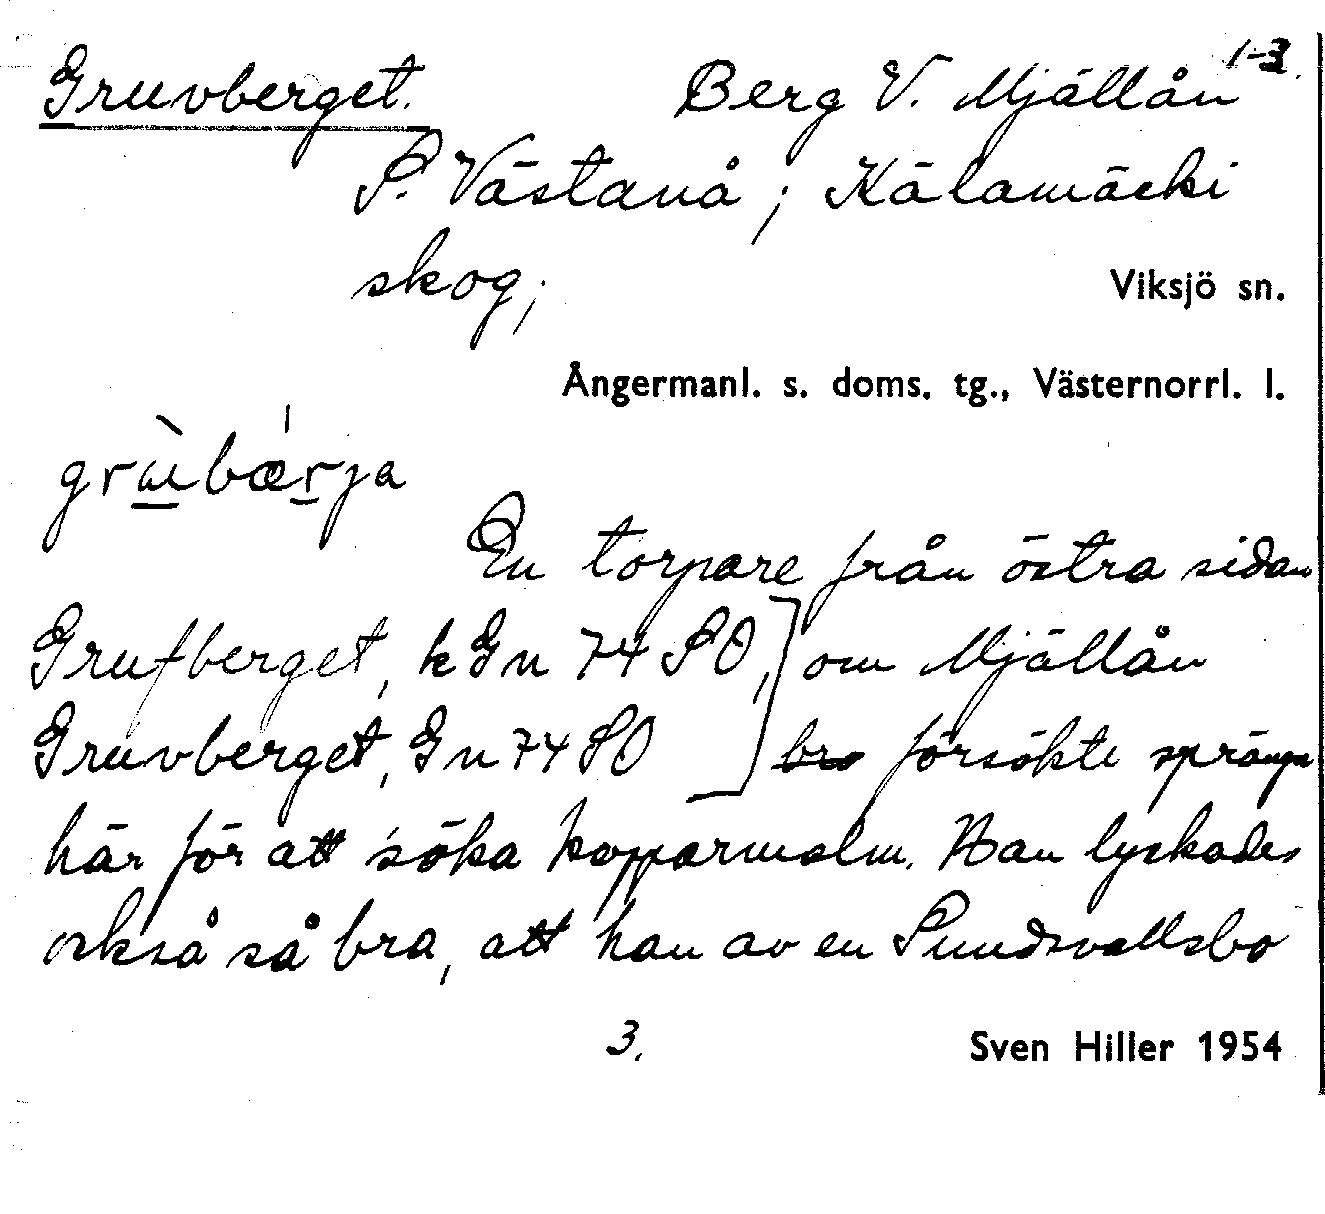 1-3
Gruvberget. Berg V. Mjällån
S. Västanå; Kälamäcki
skog; Viksjö sn.
Ångermanl. s. doms. tg., Västernorrl. l.
grùbǽrja
En torpare från östra sidan
Grufberget, kGn 74 SO, om Mjällån
Gruvberget, Gn 74 SO bro försökte spränga
här för att söka kopparmalm. Han lyckades
också så bra, att han av en Sundsvallsbo
3. Sven Hiller 1954